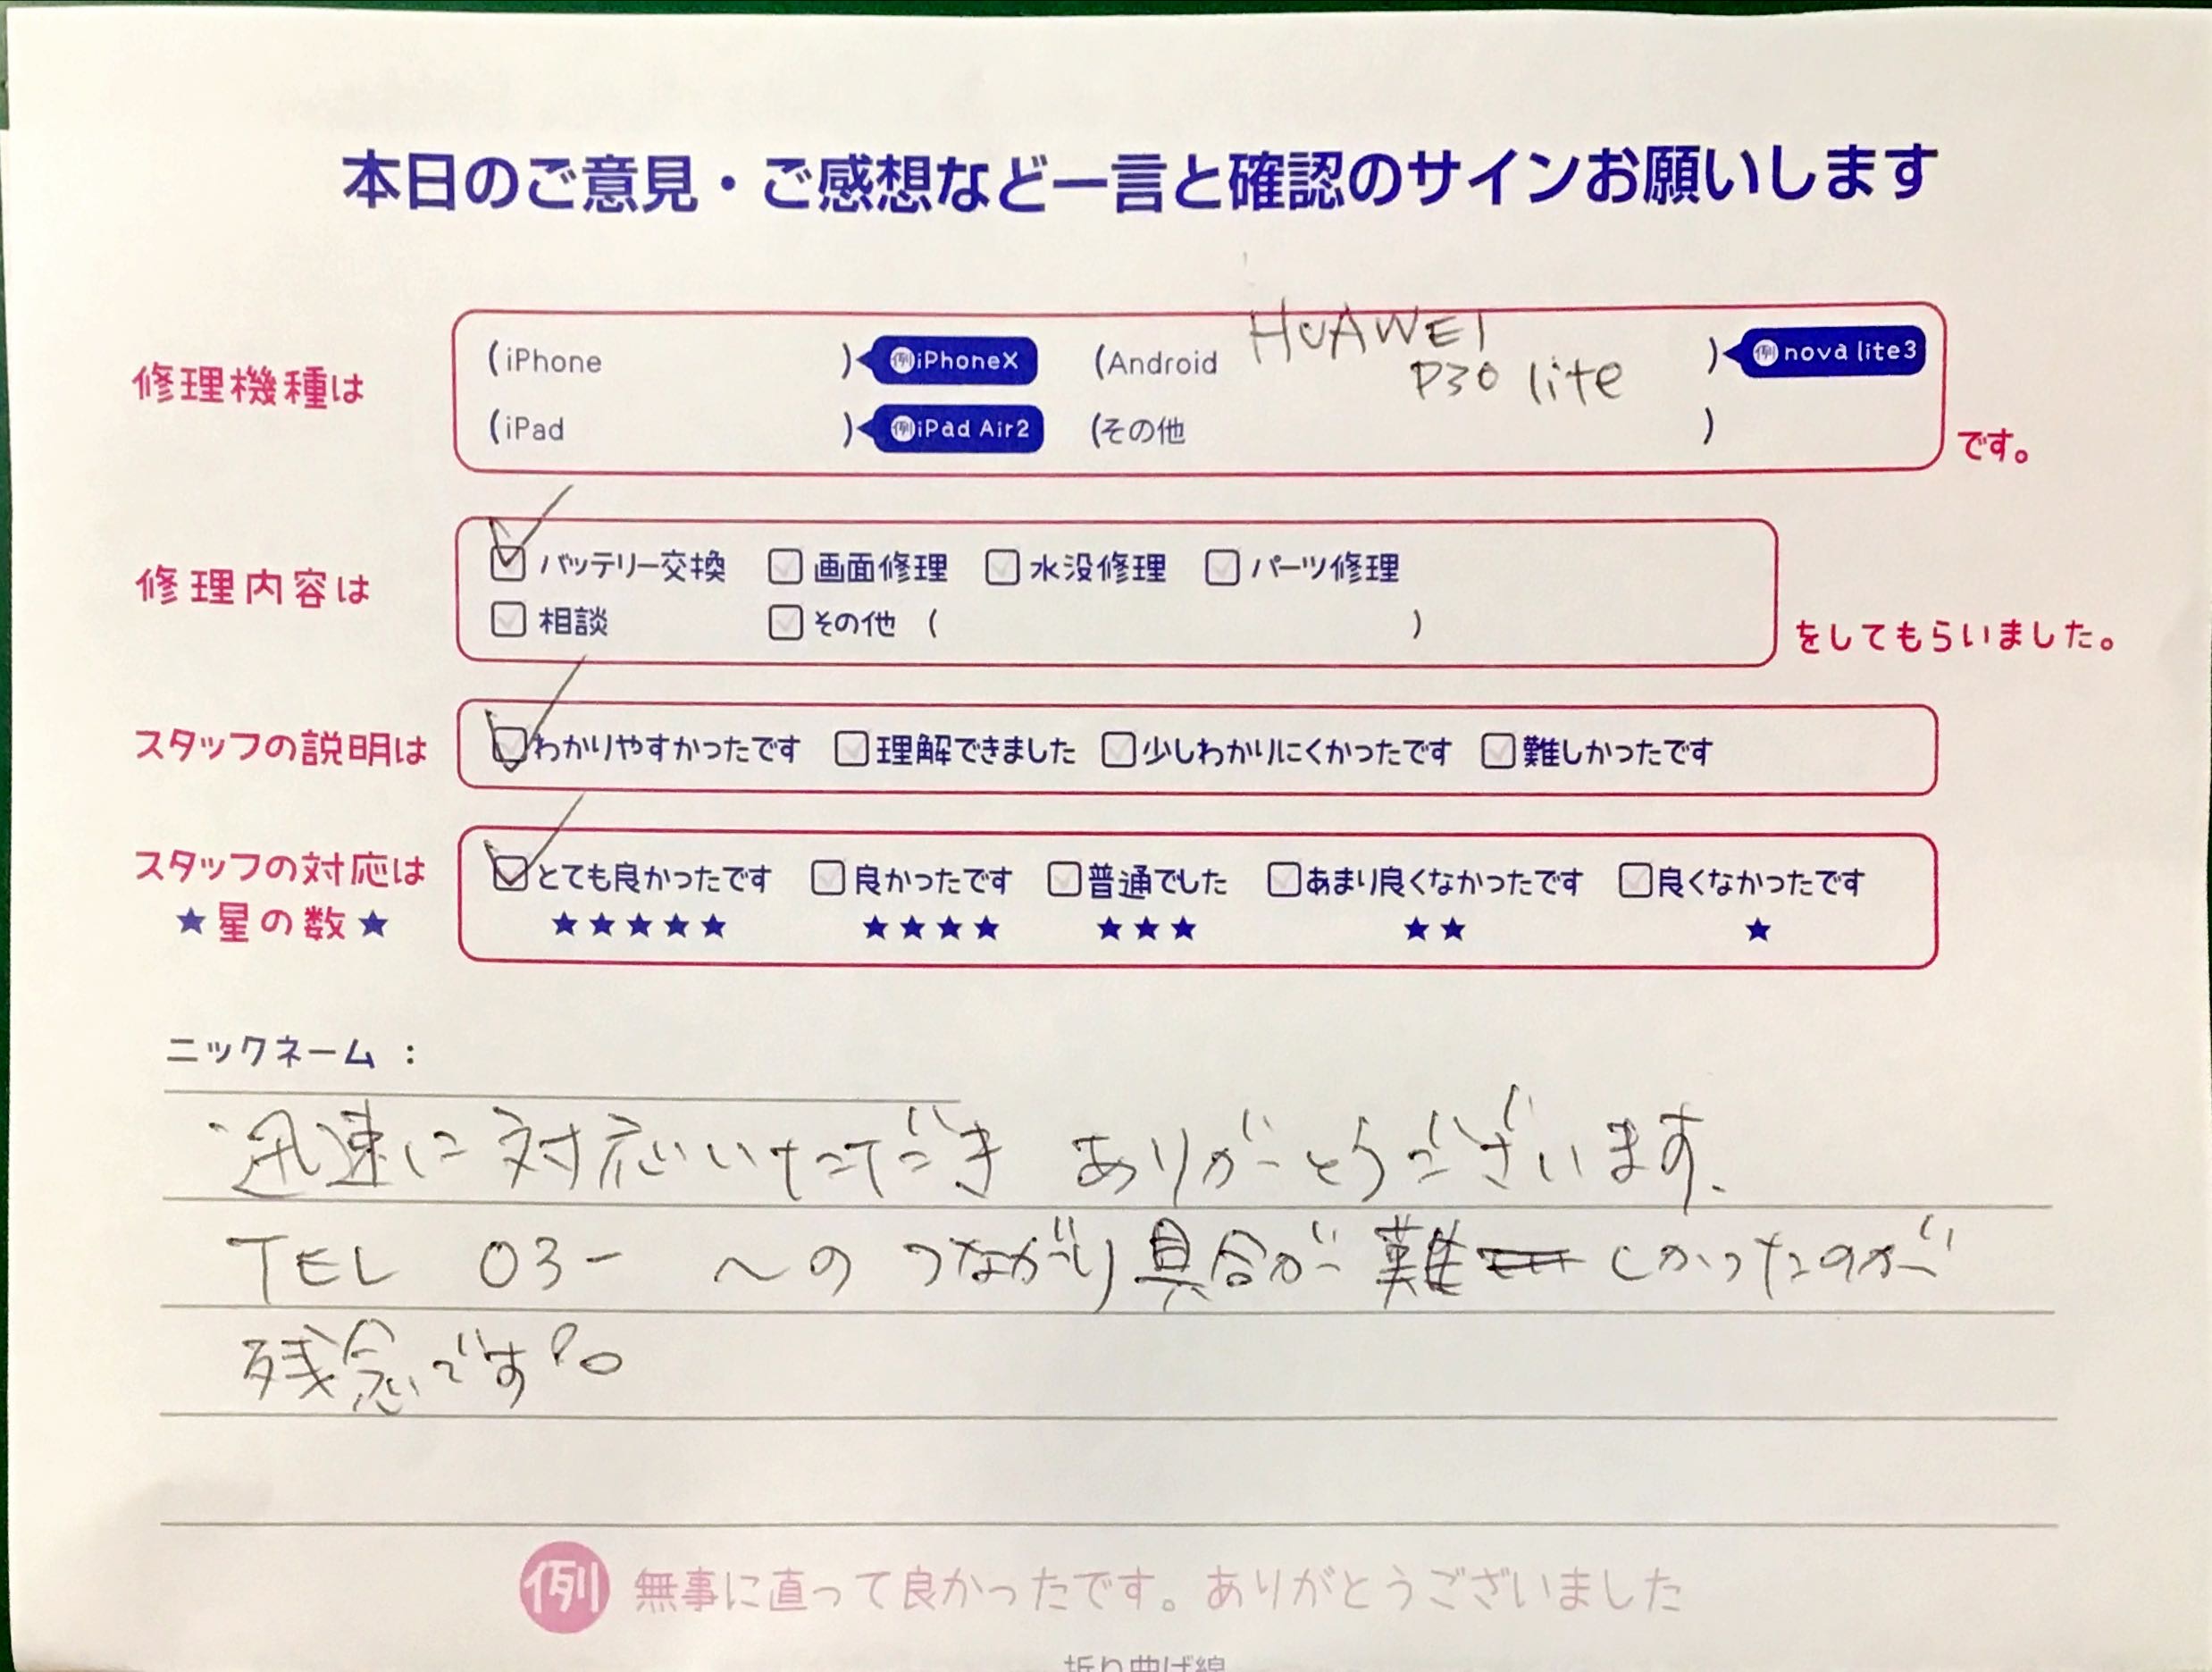 本日のご意見・ご感想など一言と確認のサインお願いします
修理機種は
(iPhone ) 例iPhoneX (Android HUAWEI P30 lite ) 例nova lite3
(iPad ) 例iPad Air2 (その他 )
です。
修理内容は
バッテリー交換 画面修理 水没修理 パーツ修理
相談 その他 ( )
をしてもらいました。
スタッフの説明は
わかりやすかったです 理解できました 少しわかりにくかったです 難しかったです
スタッフの対応は
★星の数★
とても良かったです 良かったです 普通でした あまり良くなかったです 良くなかったです
★★★★★ ★★★★ ★★★ ★★ ★
ニックネーム :
迅速に対応いただき ありがとうございます、
TEL 03- への つながり具合が 難しかったのが
残念です。
例 無事に直って良かったです。ありがとうございました
折り曲げ線